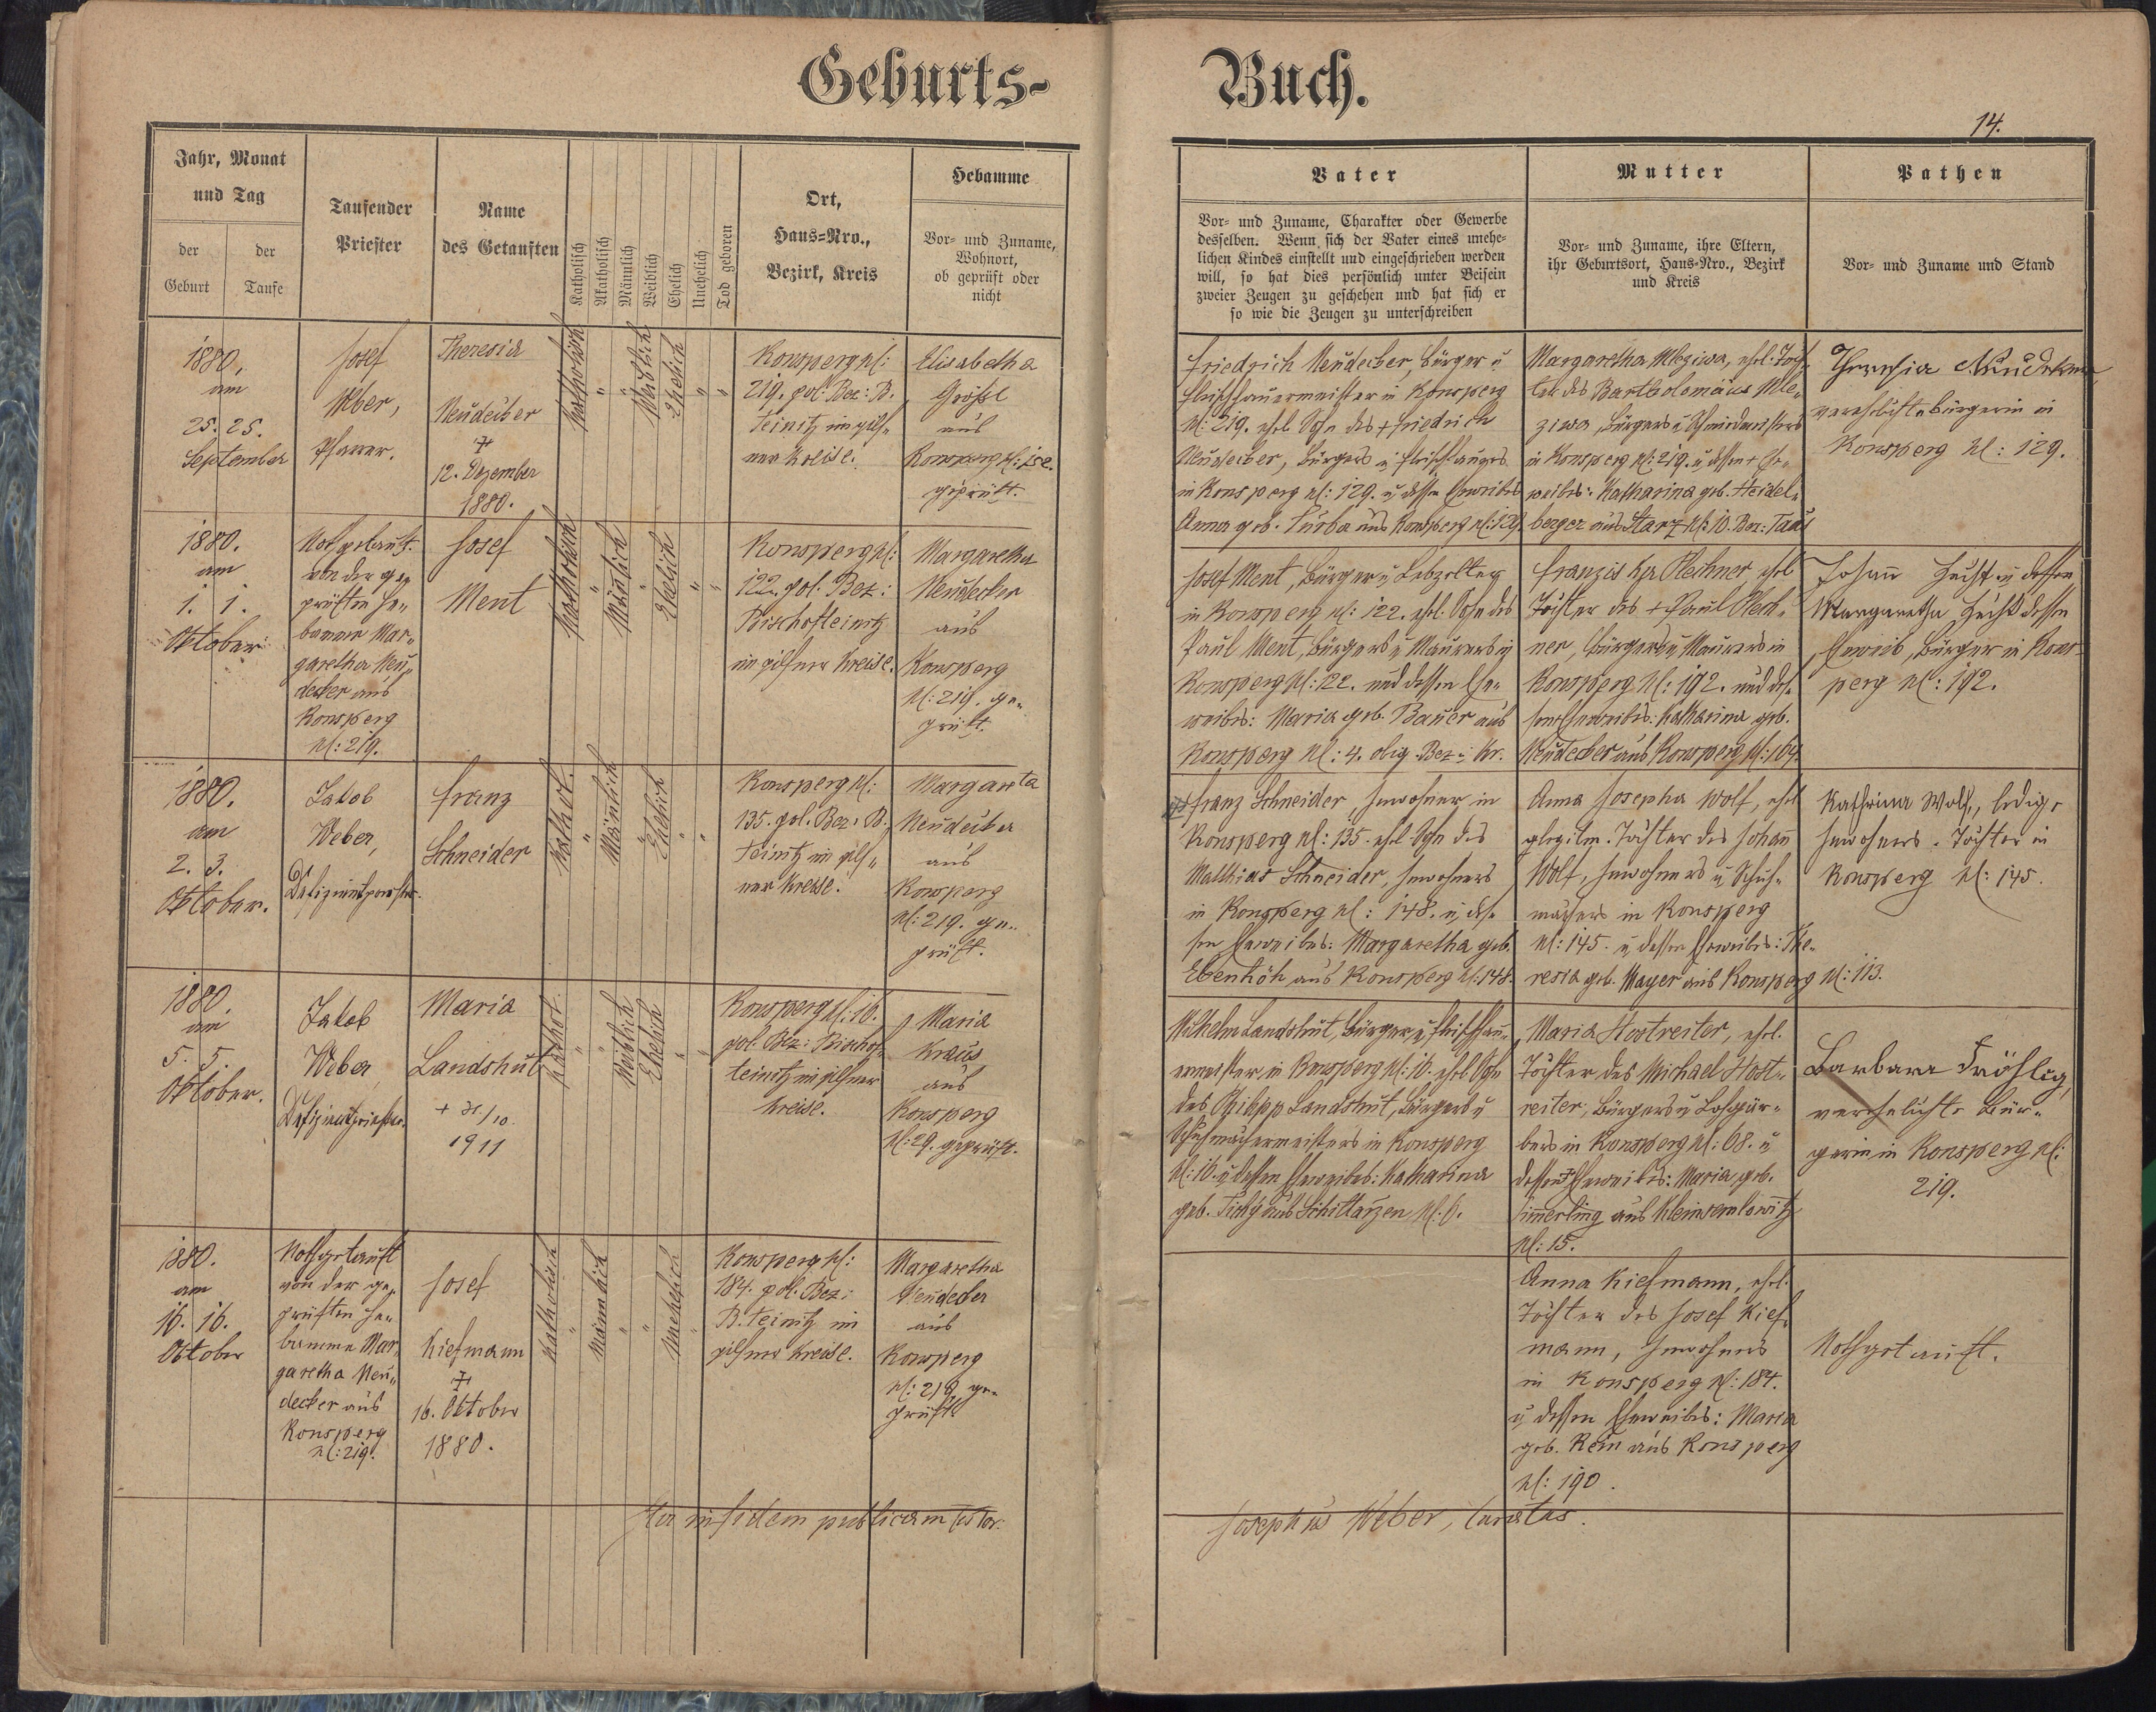 Geburts-
Buch.
14.
Jahr, Monat
und Tag
der
Geburt
der
Taufe
Taufender
Priester
Name
des Getauften
Katholisch
Akatholisch
Männlich
Weiblich
Ehelich
Unehelich
Tod geboren
Ort,
Haus-Nro.,
Bezirk, Kreis
Hebamme
Vor- und Zuname,
Wohnort,
ob geprüft oder
nicht
Vater
Vor- und Zuname, Charakter oder Gewerbe
desselben. Wenn sich der Vater eines unehe-
lichen Kindes einstellt und eingeschrieben werden
will, so hat dies persönlich unter Beisein
zweier Zeugen zu geschehen und hat sich er
so wie die Zeugen zu unterschreiben
Mutter
Vor- und Zuname, ihre Eltern,
ihr Geburtsort, Haus-Nro., Bezirk
und Kreis
Pathen
Vor- und Zuname und Stand
1880.
am
25. 25.
September
Josef
Weber,
Pfarrer.
Theresia
Neudecker
†
12. Dezember
1880.
Katholisch
Weiblich
Ehelich
Konsperg N:
219. pol: Bez: B.
Teinitz im pils„
ner Kreise.
Elisabetha
Größl
aus
Konsperg N:
geprüft.
Friedrich Neudecker, Bürger u
Fleischhauermeister in Konsperg
N: 219. ehel. Sohn des + Friedrich
Neudecker, Bürgers u Fleischhauers
in Konsperg N: 129. u dessen Eheweibes
Anna geb. Turba aus Konsperg N: 129.
Margaretha Mleziwa, ehel: Toch„
ter des Bartholomäus Mle„
ziwa, Bürgers u Schmiedmeisters
in Konsperg N: 219. u dessen + Ehe„
weibes: Katharina geb. Heidel„
berger aus Starz N: 10. Bez: Taus
Theresia Neudecker,
verehelichte Bürgerin in
Konsperg N: 129.
1880.
am
1. 1.
Oktober
Nothgetauft
von der ge„
prüften He„
bamme Mar„
garetha Neu„
decker aus
Konsperg
N: 219.
Josef
Ment
Katholisch
Mänlich
Ehelich
Konsperg N:
122. pol. Bez:
Bischofteinitz
im pilsner Kreise.
Margaretha
Neudecker
aus
Konsperg
N: 219. ge„
prüft.
Josef Ment, Bürger u Lebzelter
in Konsperg N: 122. ehel. Sohn des
Paul Ment, Bürgers u Maurers in
Konsperg N: 122. und dessen Ehe„
weibes: Maria geb. Bauer aus
Konsperg N: 4. obig. Bez u Kr.
Franziska Plechner, ehel
Tochter des + Paul Plech„
ner, Bürgers u Maurers in
Konsperg N: 192. und des„
sen Eheweibes: Katharina geb.
Neudecker aus Konsperg N: 164.
Johann u dessen
Margaretha dessen
Eheweib, Bürger in Kons„
perg N: 192.
1880.
am
2. 3.
Oktober.
Jakob
Weber,
Defizientpriester.
Franz
Schneider
Kathol.
Mänlich
Ehelich
Konsperg N:
135. pol. Bez: B.
Teinitz im pils„
ner Kreise.
Margareta
Neudecker
aus
Konsperg
N: 219. ge„
prüft.
Franz Schneider, Inwohner in
Konsperg N: 135. ehel Sohn des
Matthias Schneider, Inwohners
in Konsperg N: 148. u des„
sen Eheweibes: Margaretha geb.
Ebenhöh aus Konsperg N: 148.
Anna Josepha Wolf, ehel
Tochter des Johann
Wolf, Inwohners u Schuh„
machers in Konsperg
N: 145. u dessen Eheweibes: The„
resia geb. Mayer aus Konsperg N: 113.
Katharina Wolf, ledige
Inwohners„Tochter in
Konsperg N: 145.
1880.
am
5. 5.
Oktober.
Jakob
Weber
Defizientpriester.
Maria
Landshut
+ 31/10
1911
Kathol.
Weiblich
Ehelich
Konsperg N: 16.
pol. Bez: Bischof„
teinitz im pilsner
Kreise.
Maria
Kraus
aus
Konsperg
N: 29. geprüft.
Wilhelm Landshut, Bürger u Fleischhau„
ermeister in Konsperg N: 16. ehel Sohn
des Philipp Landshut, Bürgers u
Schuhmachermeisters in Konsperg
N: 16. u dessen Eheweibes: Katharina
geb. Tichy aus Schittarzen N: 6.
Maria Hostreiter, ehel.
Tochter des Michael Host„
reiter, Bürgers u Lohgär„
bers in Konsperg N: 68. u
dessen + Eheweibes: Maria geb.
Simerling aus Kleinsemlowitz
N: 15.
Barbara Fröhlig,
verehelichte Bür„
gerin in Konsperg N:
219.
1880.
am
16. 16.
Oktober
Nothgetauft
von der ge„
prüften He„
bamme Mar„
garetha Neu„
decker aus
Konsperg
N: 219.
Josef
Kiefmann
†
16. Oktober
1880.
Katholisch
Männlich
Unehelich
Konsperg N:
184. pol. Bez:
B. teinitz im
pilsner Kreise.
Margaretha
Neudecker
aus
Konsperg
N: 219. ge„
prüft
Anna Kiefmann, ehel.
Tochter des Josef Kief„
mann, Inwohners
in Konsperg N: 184.
u dessen Eheweibes: Maria
geb. Rein aus Konsperg
N: 190.
Nothgetauft.
Ita in fidem publicam testor:
Josephus Weber, Curatus.